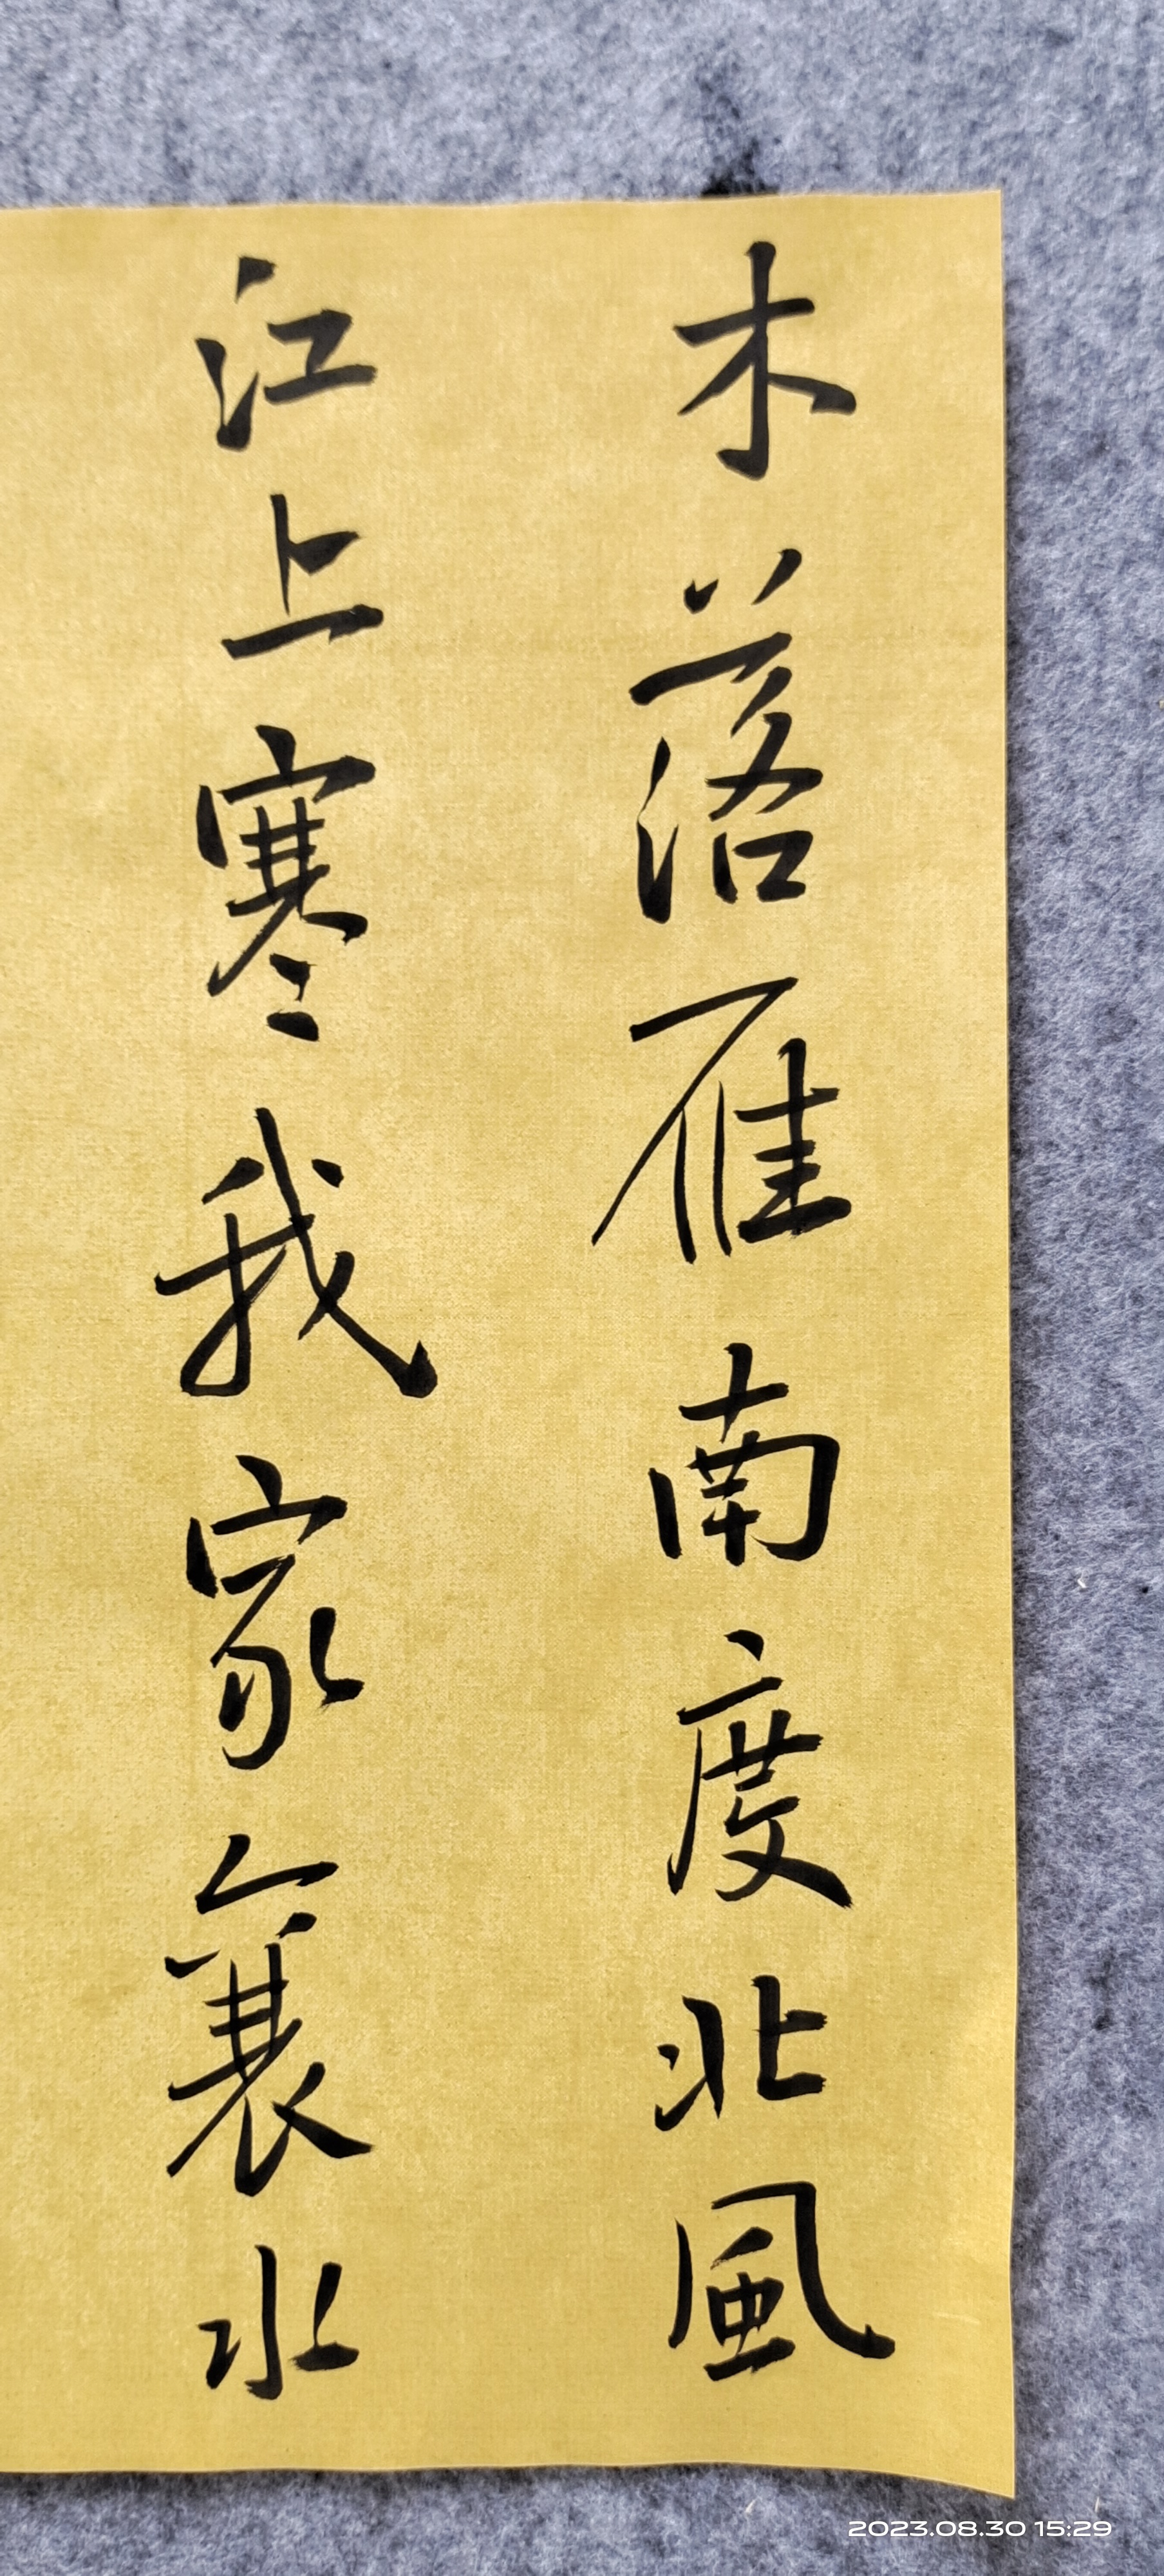 木落雁南度北風
江上寒我家襄水
2023.08.30 15:29